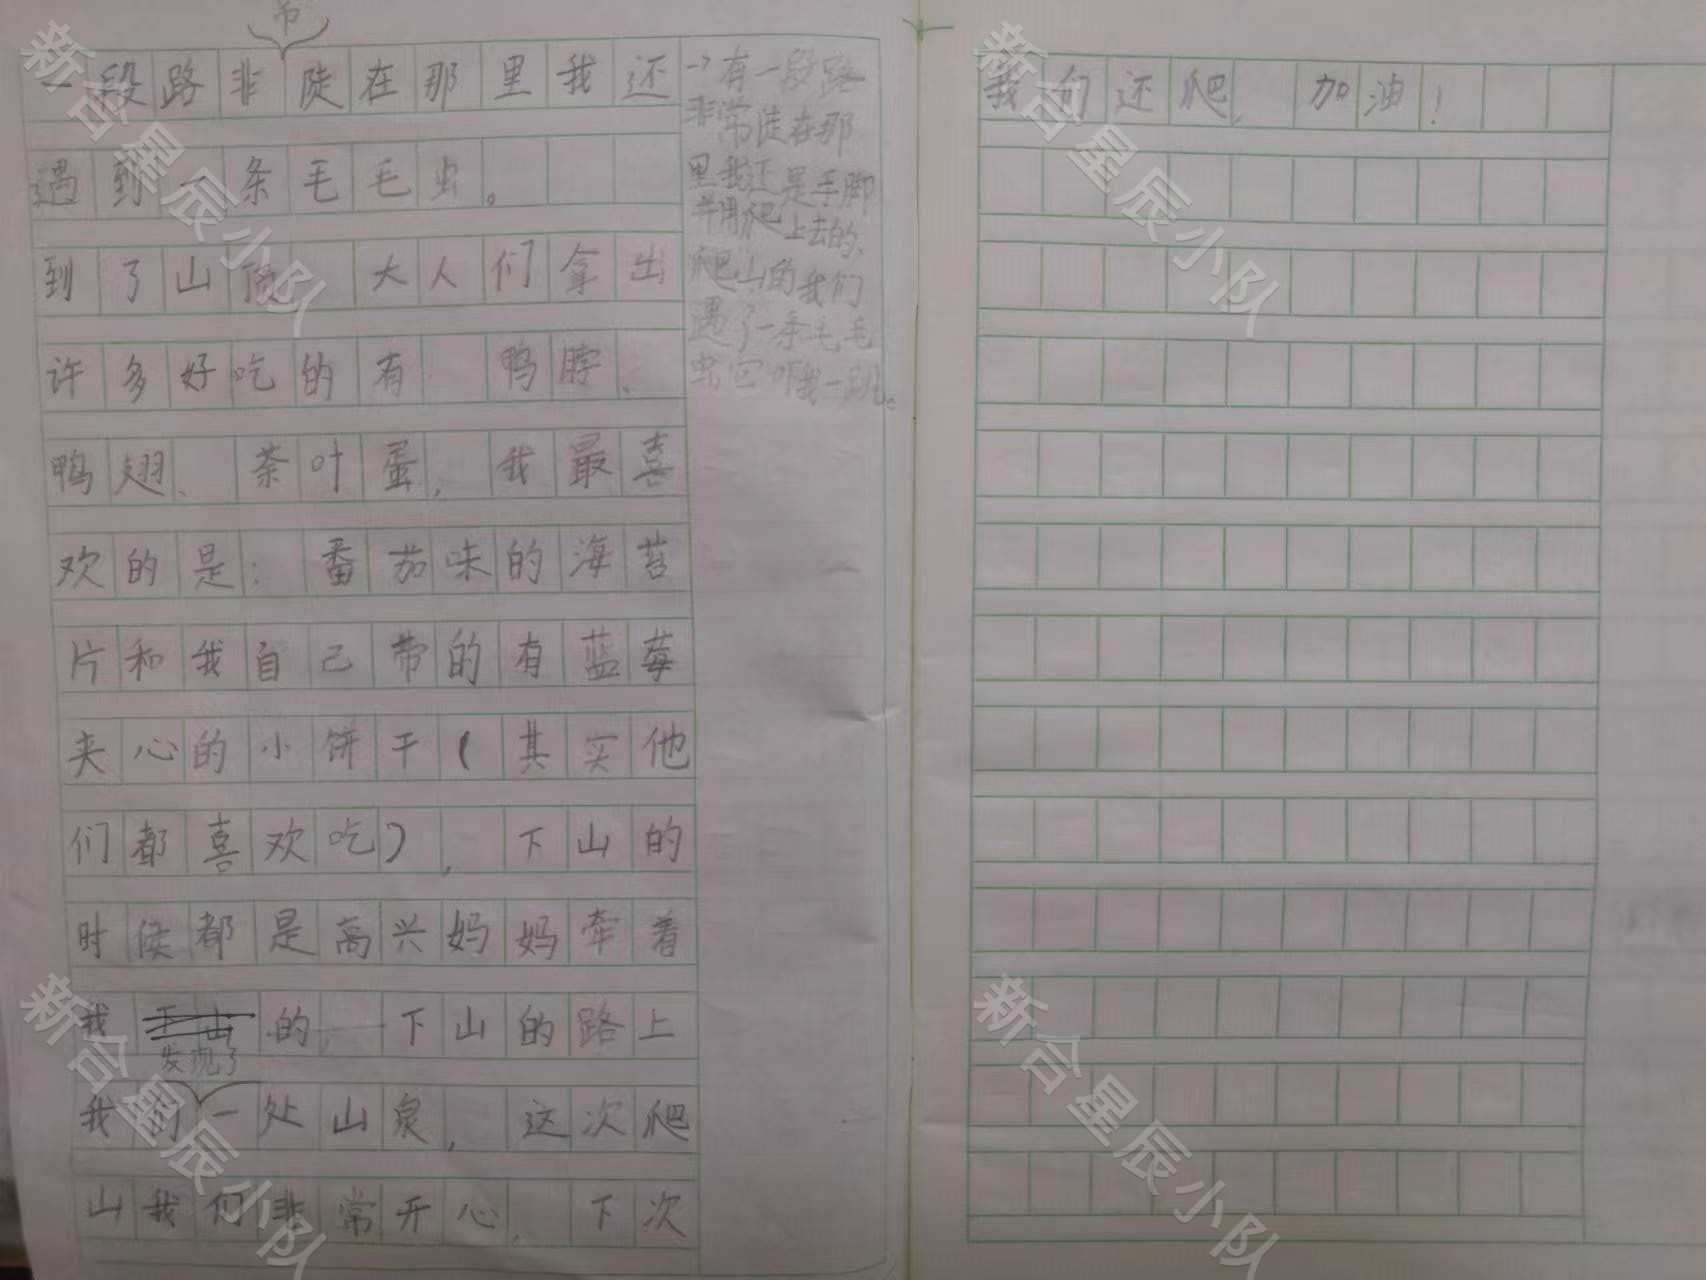 常
一段路非陡在那里我还
遇到一条毛毛虫。
到了山顶 大人们拿出
许多好吃的有 鸭脖、
鸭翅、茶叶蛋,我最喜
欢的是:番茄味的海苔
片和我自己带的有蓝莓
夹心的小饼干(其实他
们都喜欢吃),下山的
时候都是高兴妈妈牵着
我的, 下山的路上
发现了
我们一处山泉,这次爬
山我们非常开心,下次
→有一段路
非常陡在那
里我还是手脚
并用爬上去的、
爬山的我们
遇了一条毛毛
虫它吓我一跳。
我们还爬,加油!
新合星辰小队
新合星辰小队
新合星辰小队
新合星辰小队